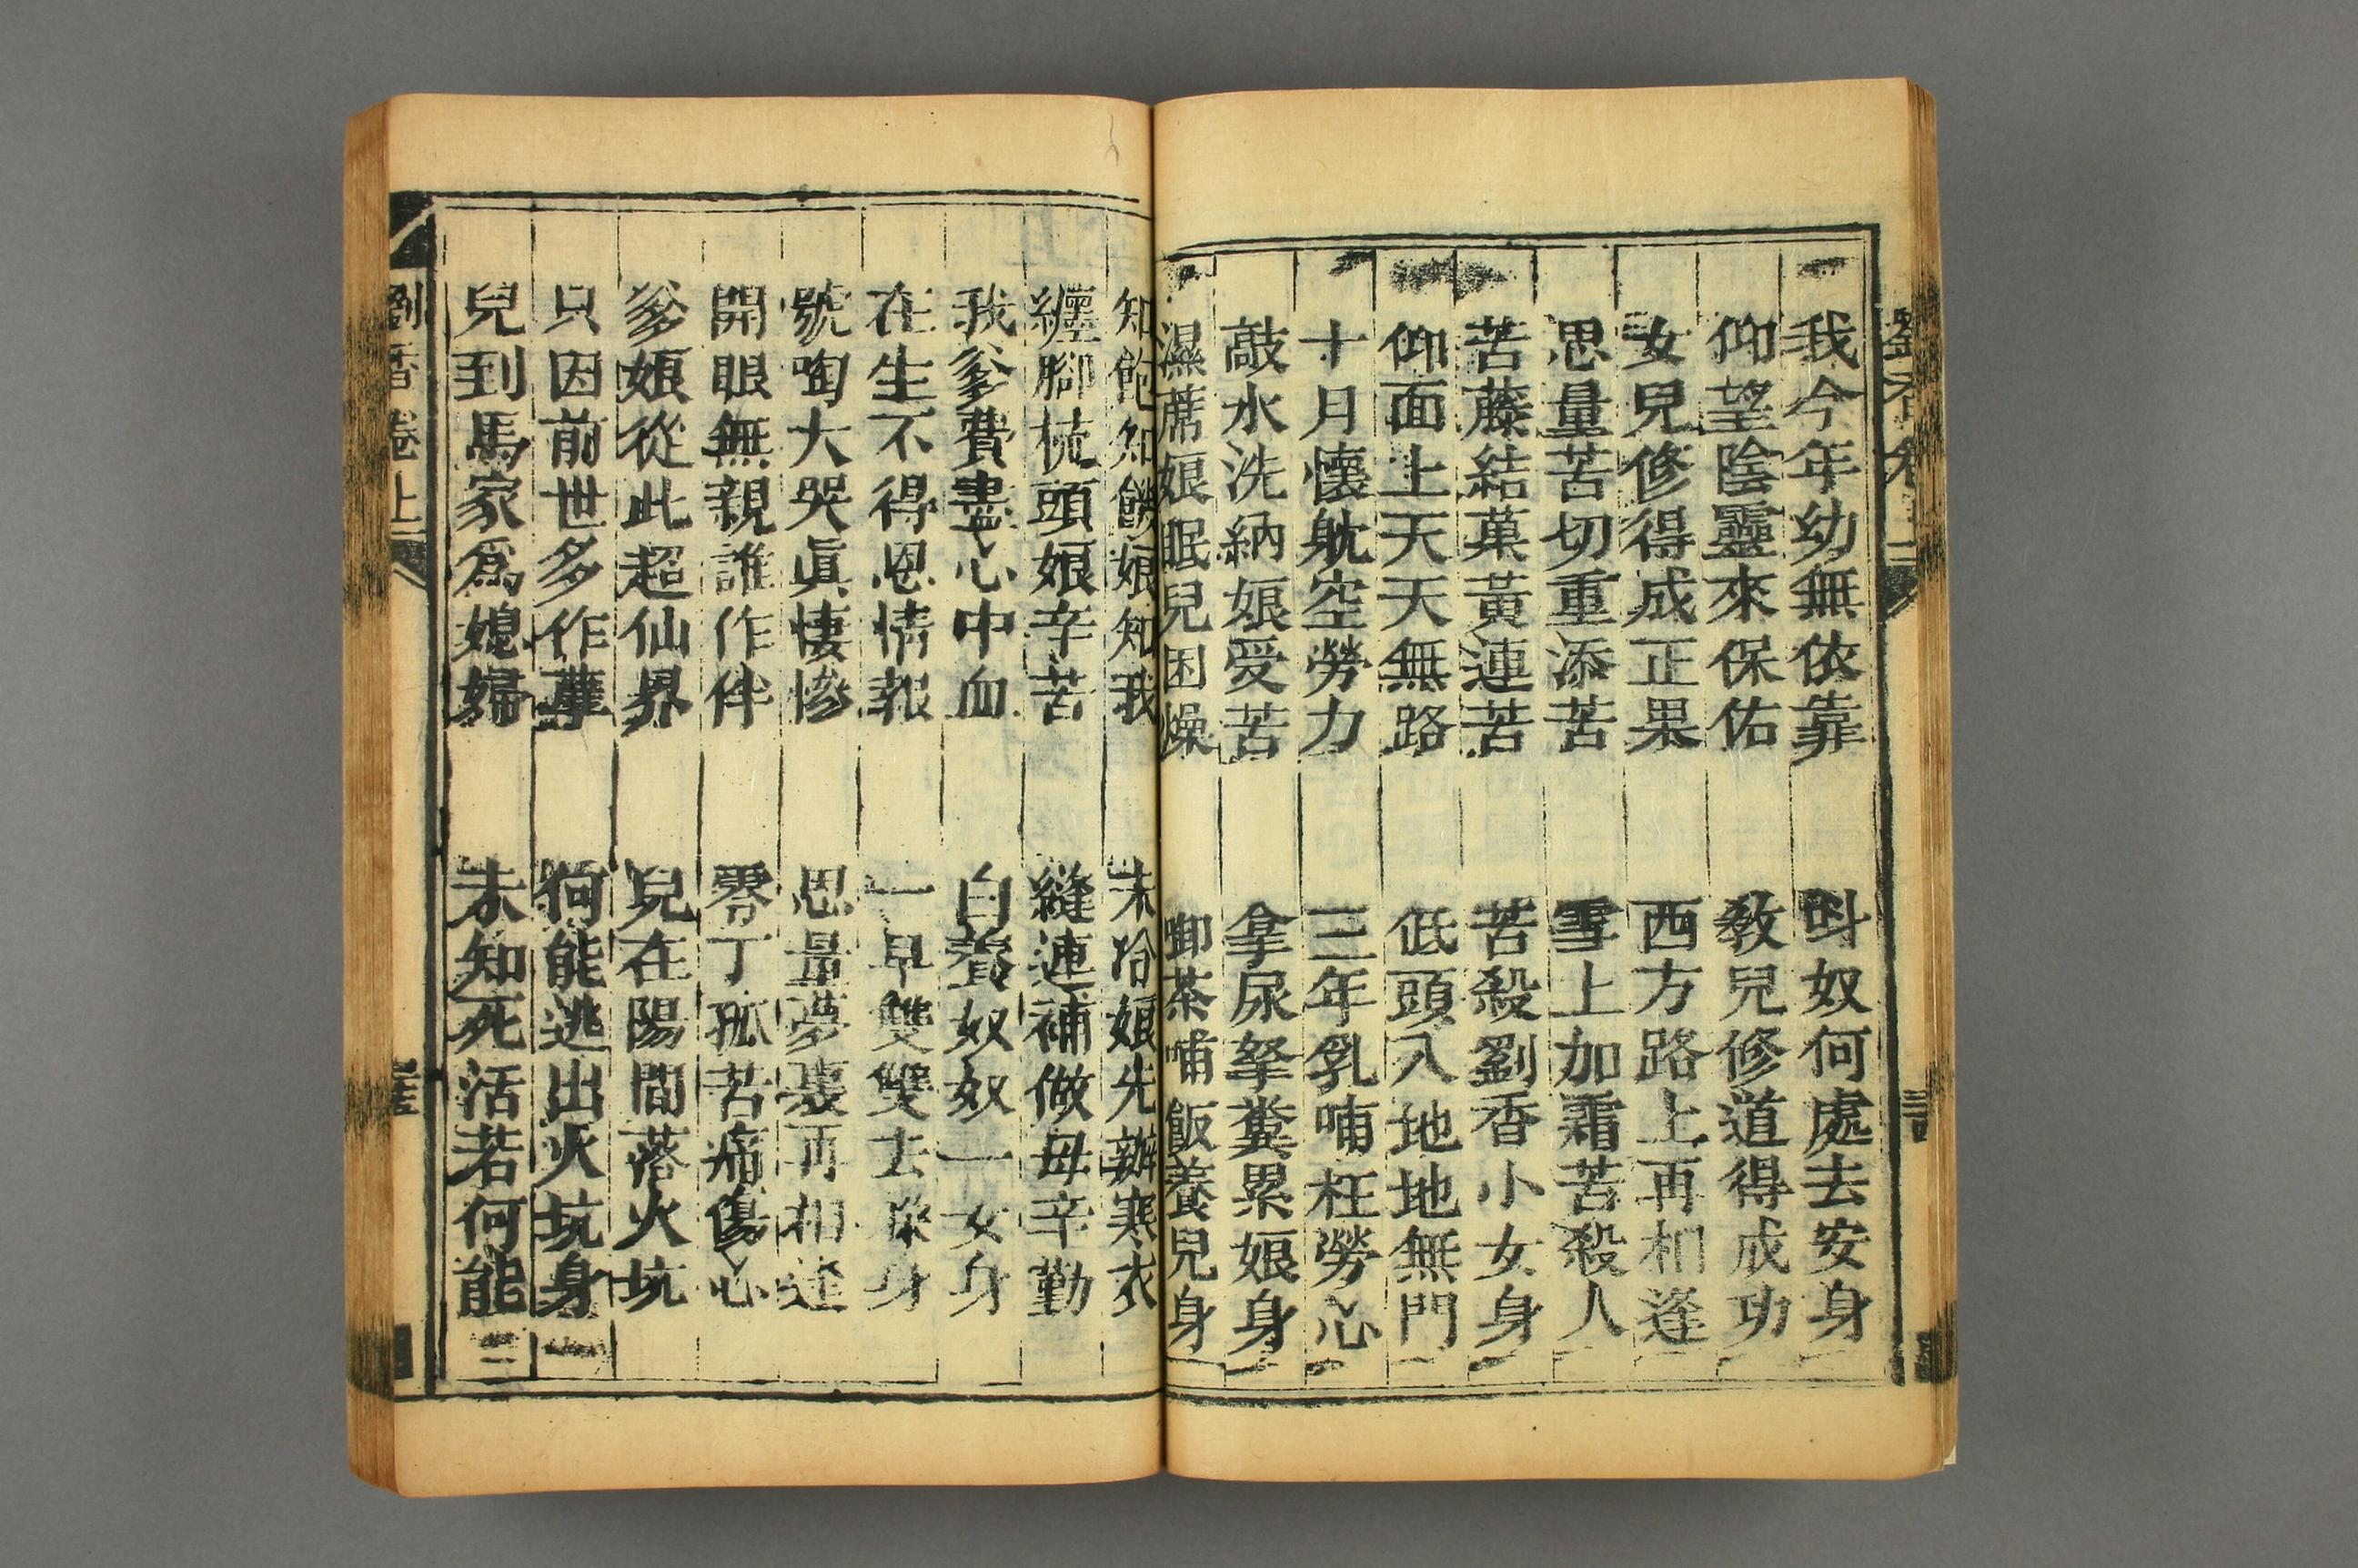 我今年幼無依靠 叫奴何處去安身
仰望陰靈來保佑 敎兒修道得成功
女兒修得成正果 西方路上再相逢
思量苦切重添苦 雪上加霜苦殺人
苦藤結菓黃連苦 苦殺劉香小女身
仰面上天天無路 低頭入地地無門
十月懷躭空勞力 三年乳哺枉勞心
敲水洗納娘受苦 拿尿拏糞累娘身
濕蓆娘眠兒困燥 啣茶哺飯養兒身
知飽知饑娘知我 未冷娘先辦寒衣
纏腳梳頭娘辛苦 縫連補做毋辛勤
我爹費盡心中血 白養奴奴一女身
在生不得恩情報 一早雙雙去 身
號啕大哭眞悽慘 思量夢裏再相逢
開眼無親誰作伴 零丁孤苦痛傷心
爹娘從此超仙界 兒在陽間落火坑
只因前世多作孽 何能逃出火坑身
兒到馬家爲媳婦 未知死活若何能
劉香卷上